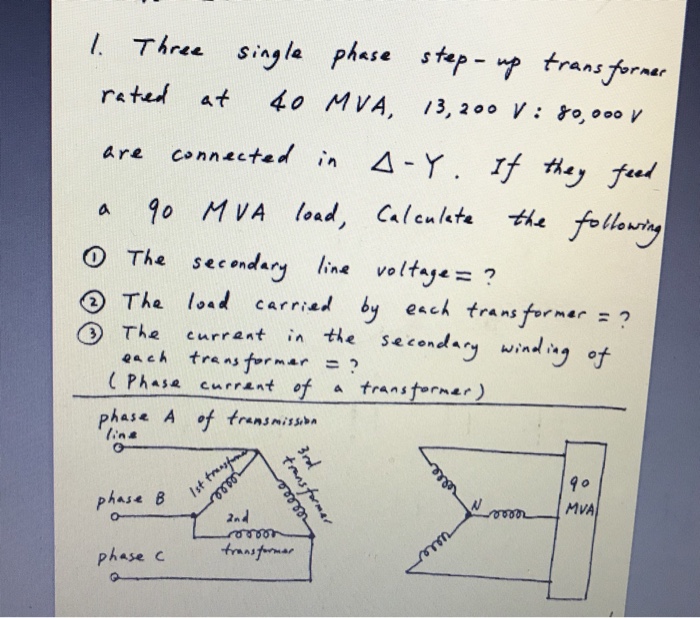 1. Three single phase step-up transformer
rated at 40 MVA, 13,200 V : 80,000 V
are connected in Δ-Y. If they feed
a 90 MVA load, Calculate the following
① The secondary line voltage = ?
② The load carried by each transformer = ?
③ The current in the secondary winding of
each transformer = ?
(Phase current of a transformer)
phase A of transmission
line
1st transforme
3rd
transformer
phase B
2nd
transformer
phase C
N
90
MVA